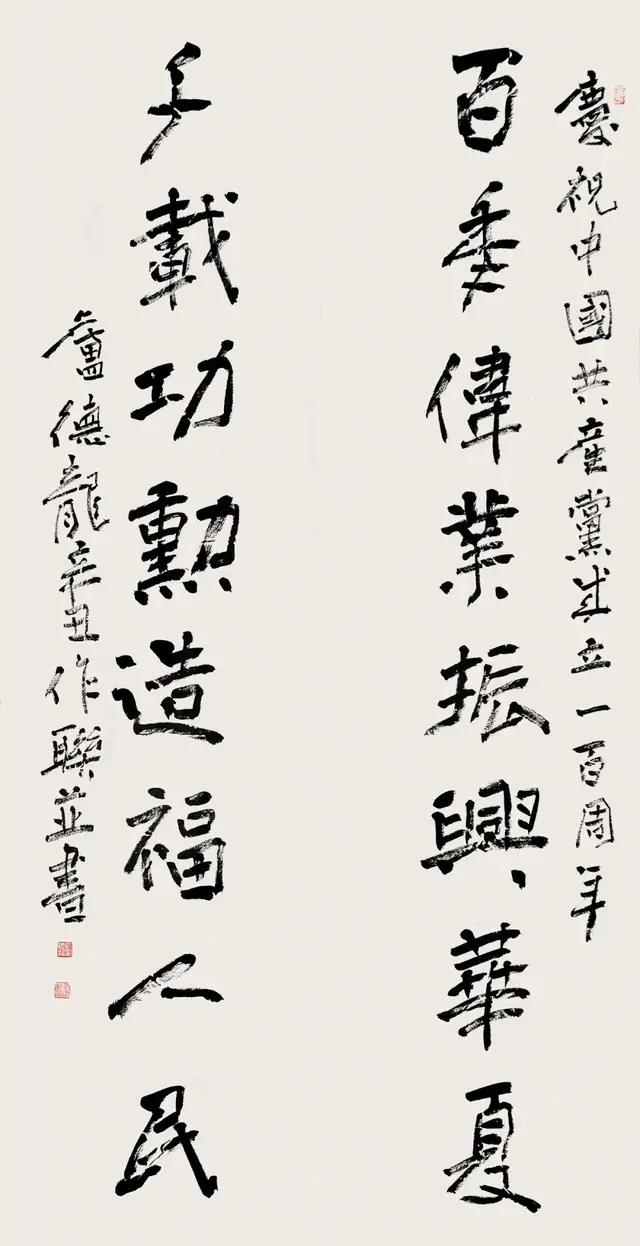 慶祝中國共産黨成立一百周年
百秊偉業振興華夏
千載功勳造福人民
盧德龍辛丑作聯並書